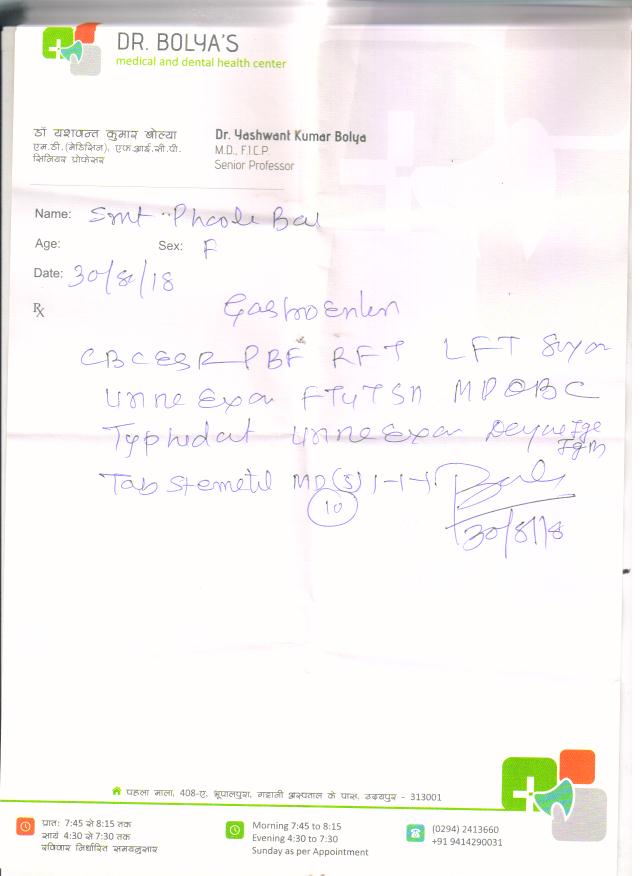 DR. BOLYA'S
medical and dental health center
डॉ यशवन्त कुमार बोल्या
एम.डी.(मेडिसिन), एफ.आई.सी.पी.
सिनियर प्रोफेसर
Dr. Yashwant Kumar Bolya
M.D., F.I.C.P.
Senior Professor
Name: Smt
Age: Sex: F
Date: 30/8/18
Rx
CBC ESR PBF RFT LFT
Urine Exam
Urine Exam
IgM
Tab Stemetil MD (5) 1-1-1
10
30/8/18
पहला माला, 408-ए, भूपालपुरा, गट्टानी अस्पताल के पास, उदयपुर - 313001
प्रात: 7:45 से 8:15 तक
सायं 4:30 से 7:30 तक
रविवार निर्धारित समयनुसार
Morning 7:45 to 8:15
Evening 4:30 to 7:30
Sunday as per Appointment
(0294) 2413660
+91 9414290031